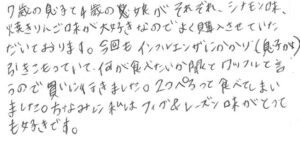 7歳の息子て4歳の娘がそれぞれ、シナモン味、
焼きりんご味が大好きなのでよく購入させていた
だいております。今回もインフルエンザにかかり(息子が)
引きこもっていて、何が食べたいか聞くとワッフルと言
うので買いに行きました。2つペろって食べてしまい
ました。ちなみに私はフィグ&レーズン味がとって
も好きです。